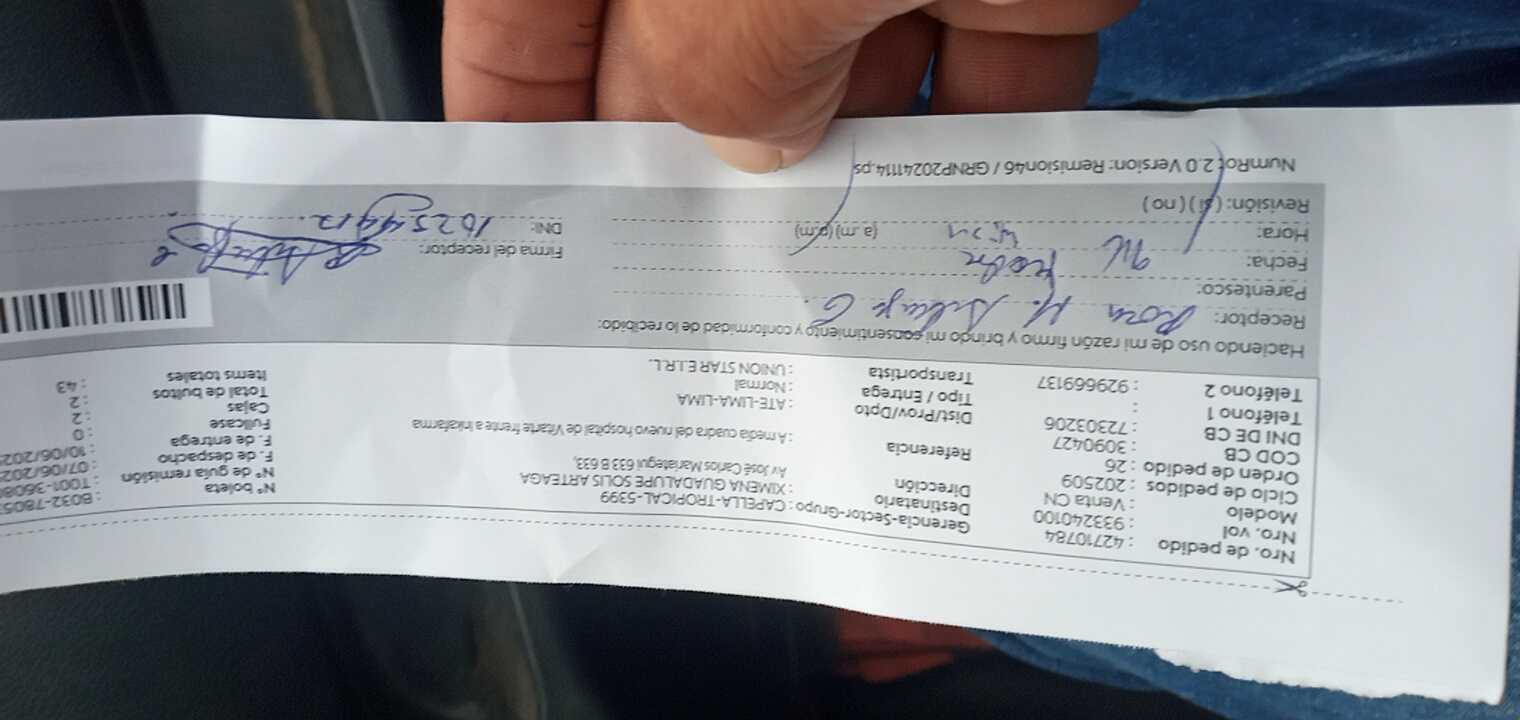 Nro. de pedido : 42710784 Gerencia-Sector-Grupo : CAPELLA-TROPICAL-5399 N° boleta : B032-7805
Nro. vol : 933240100 Destinatario : XIMENA GUADALUPE SOLIS ARTEAGA N° de guía remisión : T001-3608
Modelo : Venta CN Dirección Av José Carlos Mariategui 633 B 633, F. de despacho : 07/06/202
Ciclo de pedidos : 202509 F. de entrega : 10/06/202
Orden de pedido : 26 Referencia : A media cuadra del nuevo hospital de Vitarte frente a inkafarma Fullcase : 0
COD CB : 3090427 Dist/Prov/Dpto : ATE-LIMA-LIMA Cajas : 2
DNI DE CB : 72303206 Tipo / Entrega : Normal Total de bultos : 2
Teléfono 1 : Transportista : UNION STAR E.I.R.L. Items totales : 43
Teléfono 2 : 929669137
Haciendo uso de mi razón firmo y brindo mi consentimiento y conformidad de lo recibido:
Receptor: Rosa M.
Parentesco:
Fecha: Firma del receptor:
Hora: (a .m) (p.m) DNI:
Revisión: ( si ) ( no )
NumRot 2.0 Version: Remision46 / GRNP20241114.ps